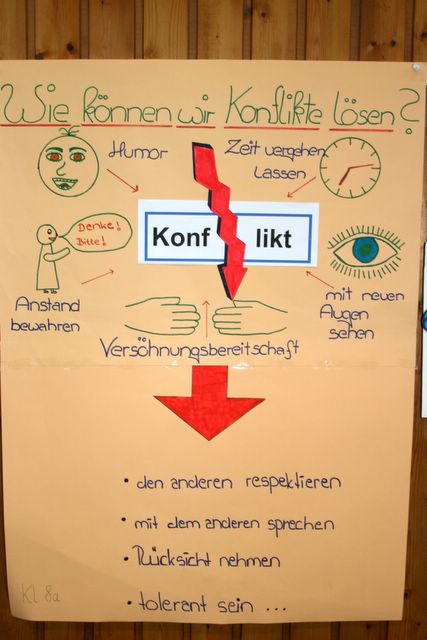 Wie können wir Konflikte lösen?
Humor
Zeit vergehen
lassen
Konf likt
Denke!
Bitte!
Anstand
bewahren
mit neuen
Augen
sehen
Versöhnungsbereitschaft
• den anderen respektieren
• mit dem anderen sprechen
• Rücksicht nehmen
• tolerant sein ...
Kl 8a